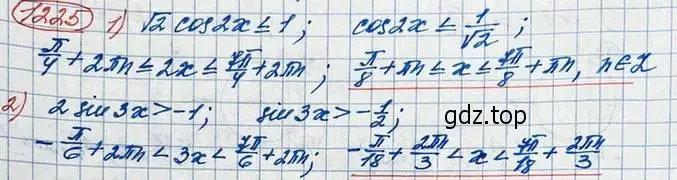 1225 1) √2 cos2x ≤ 1; cos2x ≤ 1/√2;
π/4 + 2πn ≤ 2x ≤ 7π/4 + 2πn; π/8 + πn ≤ x ≤ 7π/8 + πn, n∈Z
2) 2 sin3x > -1; sin3x > -1/2;
-π/6 + 2πn < 3x < 7π/6 + 2πn; -π/18 + 2πn/3 < x < 7π/18 + 2πn/3
gdz.top